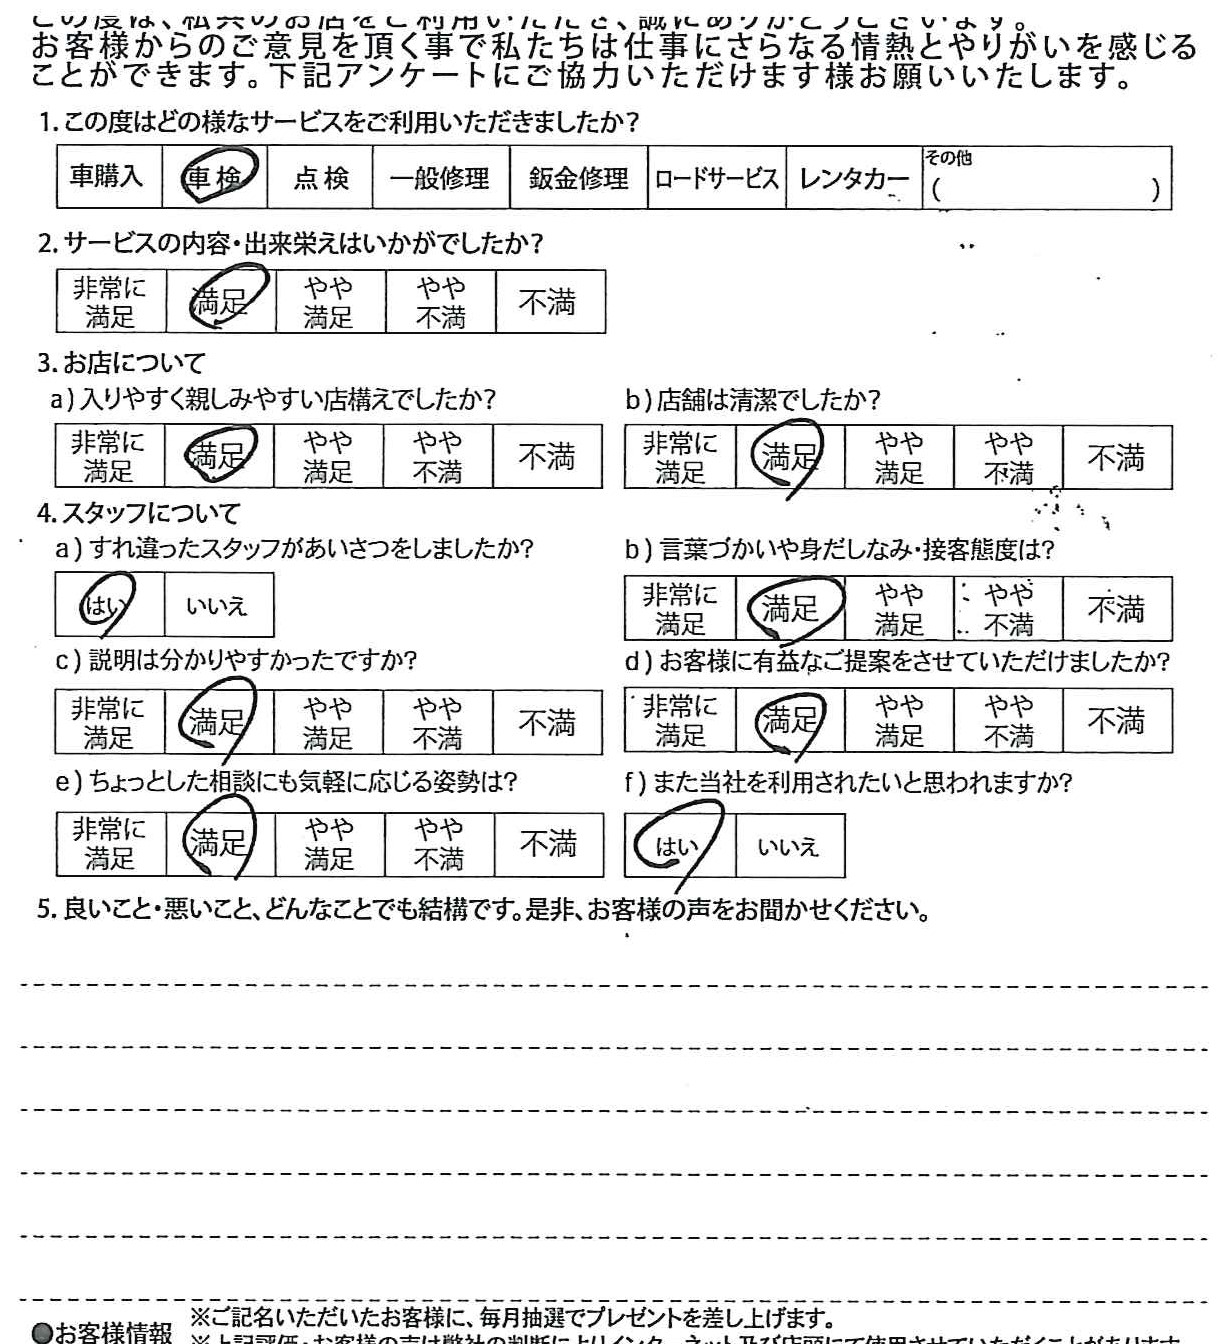 この度は、私共のお店をご利用いただき、誠にありがとうございます。
お客様からのご意見を頂く事で私たちは仕事にさらなる情熱とやりがいを感じる
ことができます。下記アンケートにご協力いただけます様お願いいたします。
1.この度はどの様なサービスをご利用いただきましたか?
車購入 車検 点検 一般修理 鈑金修理 ロードサービス レンタカー その他 ( )
2.サービスの内容・出来栄えはいかがでしたか?
非常に満足 満足 やや満足 やや不満 不満
3.お店について
a)入りやすく親しみやすい店構えでしたか?
非常に満足 満足 やや満足 やや不満 不満
b)店舗は清潔でしたか?
非常に満足 満足 やや満足 やや不満 不満
4.スタッフについて
a)すれ違ったスタッフがあいさつをしましたか?
はい いいえ
b)言葉づかいや身だしなみ・接客態度は?
非常に満足 満足 やや満足 やや不満 不満
c)説明は分かりやすかったですか?
非常に満足 満足 やや満足 やや不満 不満
d)お客様に有益なご提案をさせていただけましたか?
非常に満足 満足 やや満足 やや不満 不満
e)ちょっとした相談にも気軽に応じる姿勢は?
非常に満足 満足 やや満足 やや不満 不満
f)また当社を利用されたいと思われますか?
はい いいえ
5.良いこと・悪いこと、どんなことでも結構です。是非、お客様の声をお聞かせください。
●お客様情報
※ご記名いただいたお客様に、毎月抽選でプレゼントを差し上げます。
※上記評価・お客様の声は弊社の判断によりインターネット及び店頭にて使用させていただくことがあります。